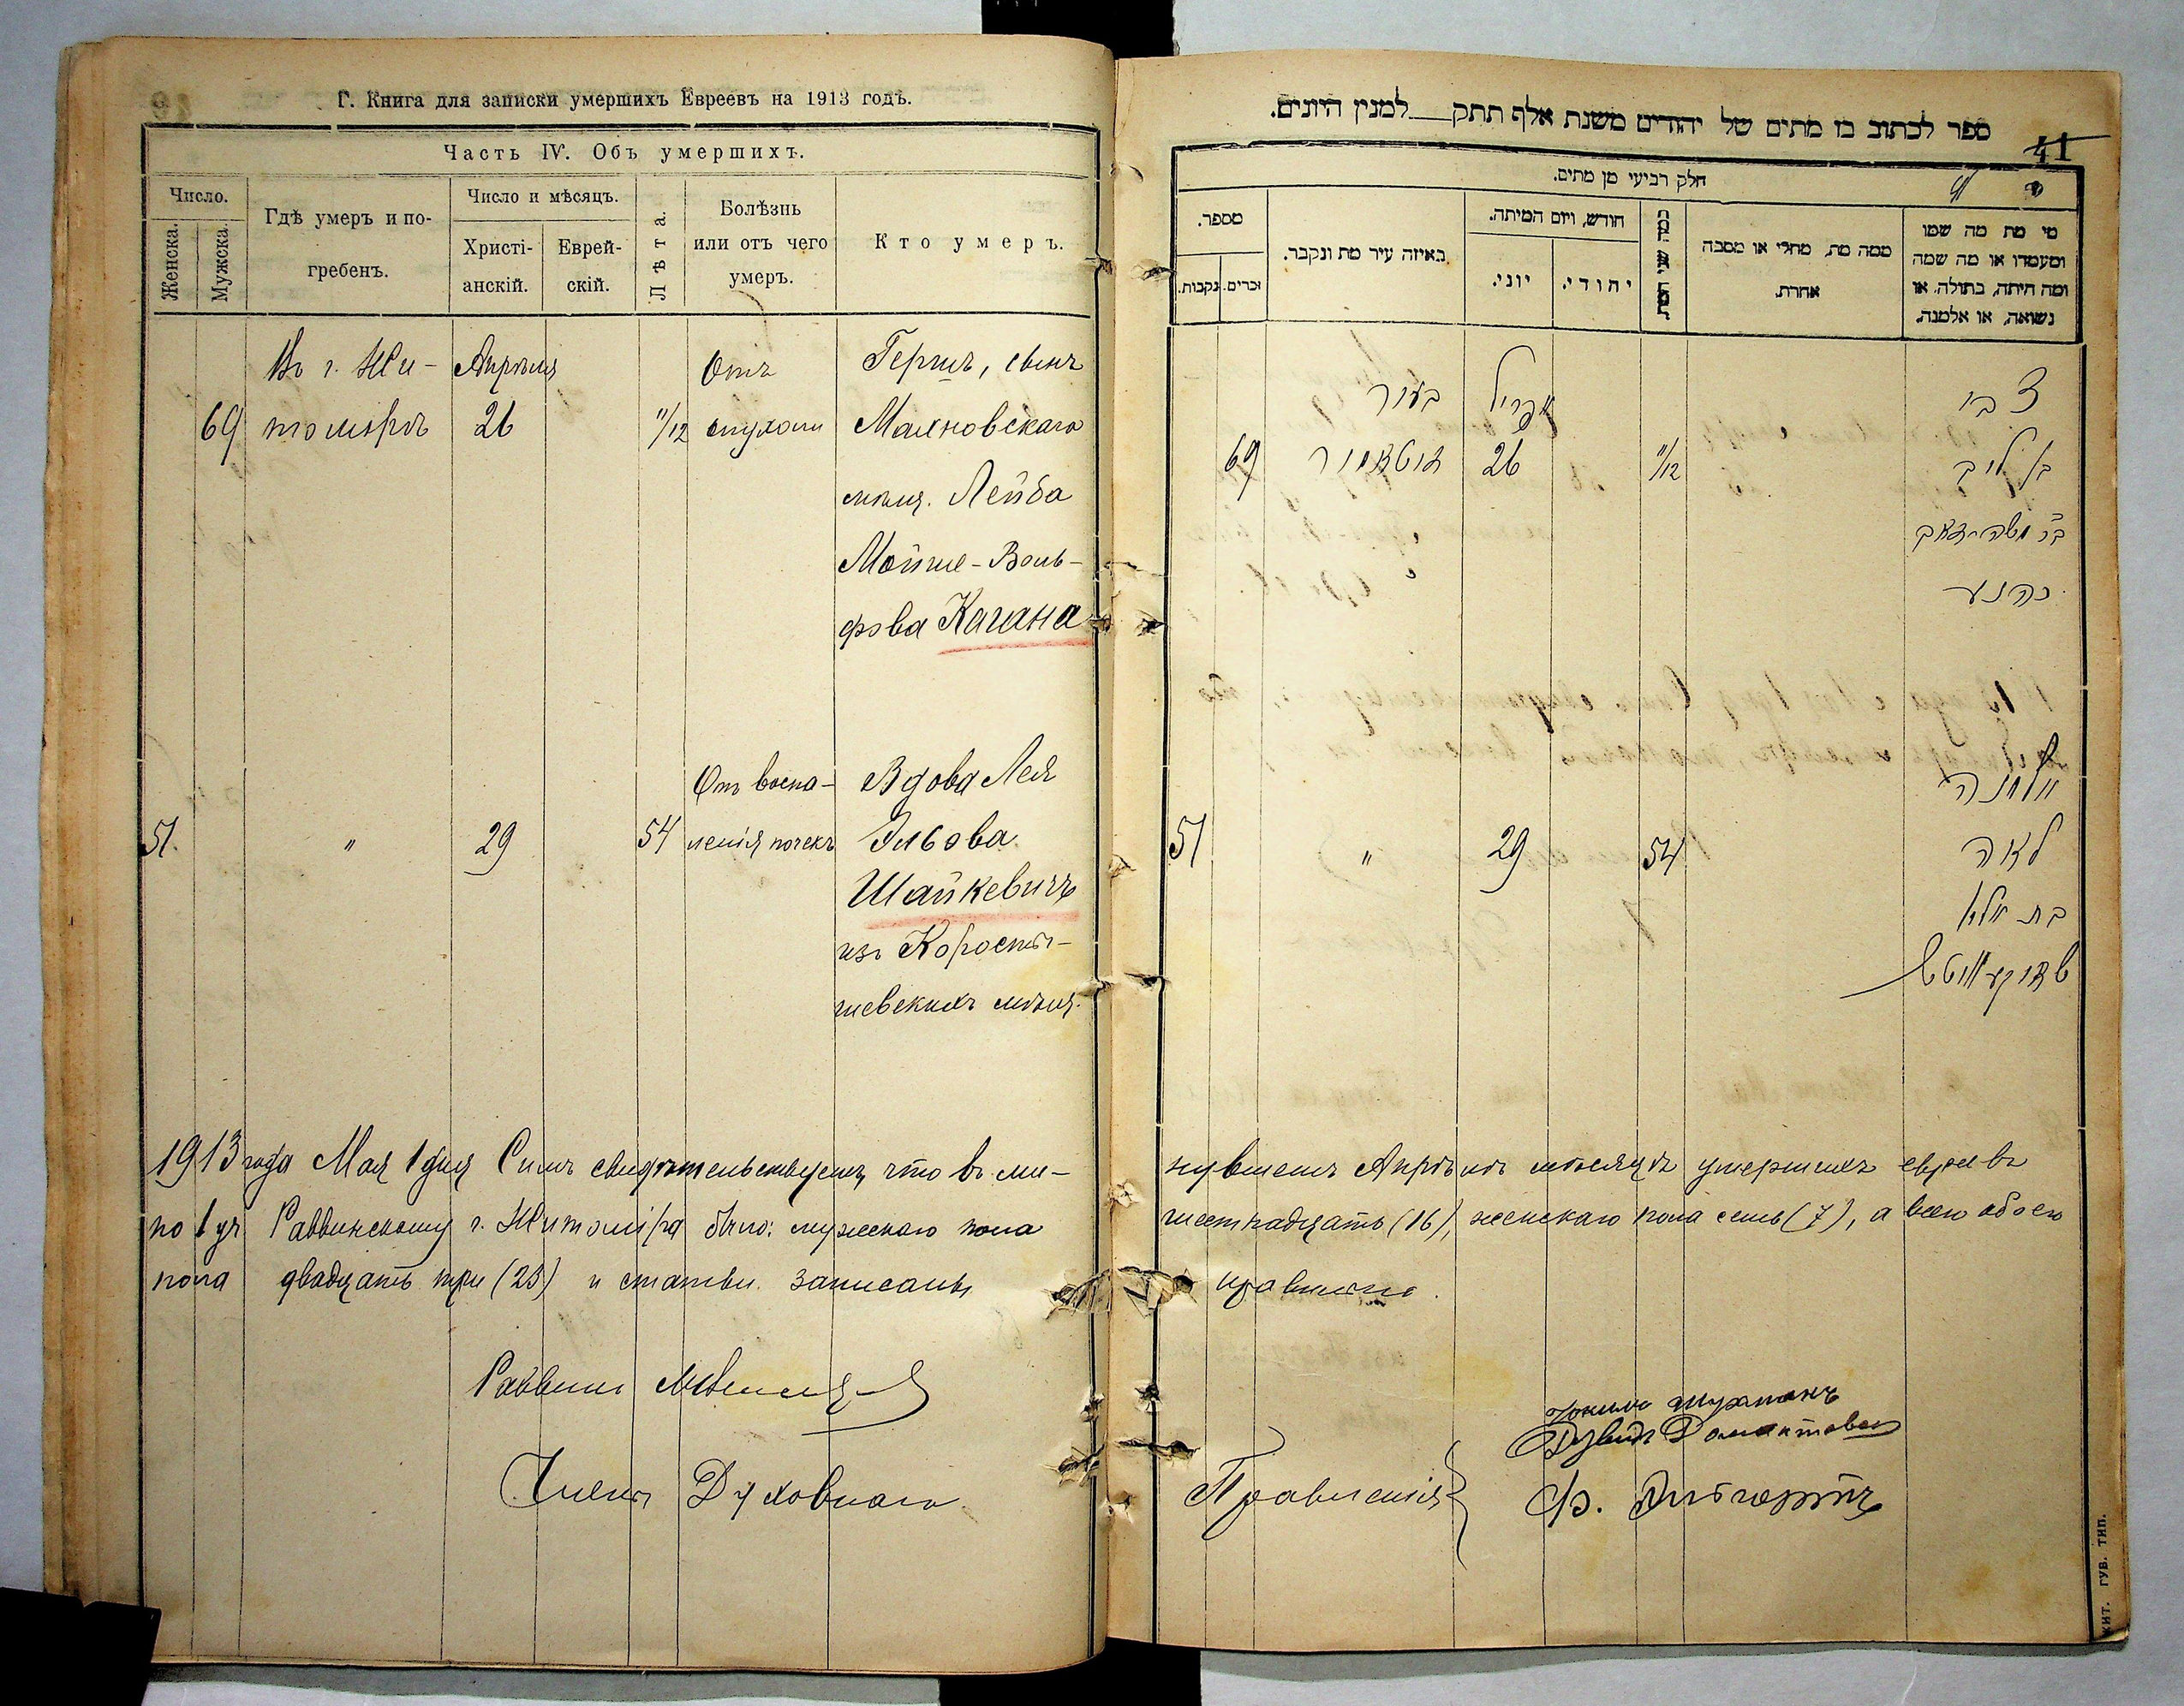 Г. Книга для записки умершихъ Евреевъ на 1913 годъ.
Часть IV. Объ умершихъ.
Число.
Женска.
Мужска.
Гдѣ умеръ и по-
гребенъ.
Число и мѣсяцъ.
Христі-
анскій.
Еврей-
скій.
Лѣта.
Болѣзнь
или отъ чего
умеръ.
Кто умеръ.
Въ г. Жи- Апрѣля Отъ Гершъ, сынъ
69 томірѣ 26 11/12 опухоли Махновскаго
мѣщ. Лейба
Мойше-Воль-
фова Кагана
Отъ воспа- Вдова Лея
51. " 29 54 ленія почекъ Эльева
Шайкевичъ
изъ Коросты-
шевскихъ мѣщ.
1913 года Мая 1 дня Симъ свидѣтельствуемъ, что въ ми-
по 1 уч Раввинскому г. Житоміра было: мужескаго пола
пола двадцать три (23) и статьи записаны
Раввинъ
Члены Духовнаго
ספר לכתוב בו מתים של יהודים משנת אלף תתק למנין היונים.
41
חלק רביעי מן מתים.
מספר.
זכרים.
נקבות.
באיזה עיר מת ונקבר.
חודש, ויום המיתה.
יוני.
יהודי.
ממה מת, מחלי או מסבה
אחרת.
מי מת מה שמו
ומעמדו או מה שמה
ומה היתה, בתולה, או
נשואה, או אלמנה.
צבי
בעיר אפריל
69 זיטאמיר 26 11/12 בן ליב
בר משה זאב
כהנא
אלמנה
51 " 29 54 לאה
בת אלי
שייקעוויטש
нувшемъ Апрѣлѣ мѣсяцѣ умершихъ евреевъ
шестнадцать (16), женскаго пола семь (7), а всего обоего
правильно.
Правленія
Шухманъ
Ф.
ЖИТ. ГУБ. ТИП.